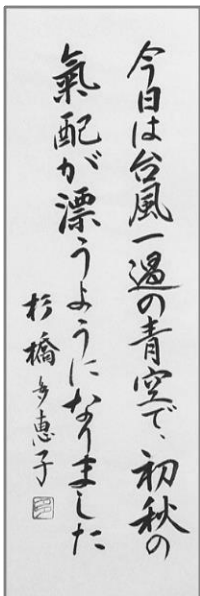 今日は台風一過の青空で、初秋の
氣配が漂うようになりました
杉橋多恵子